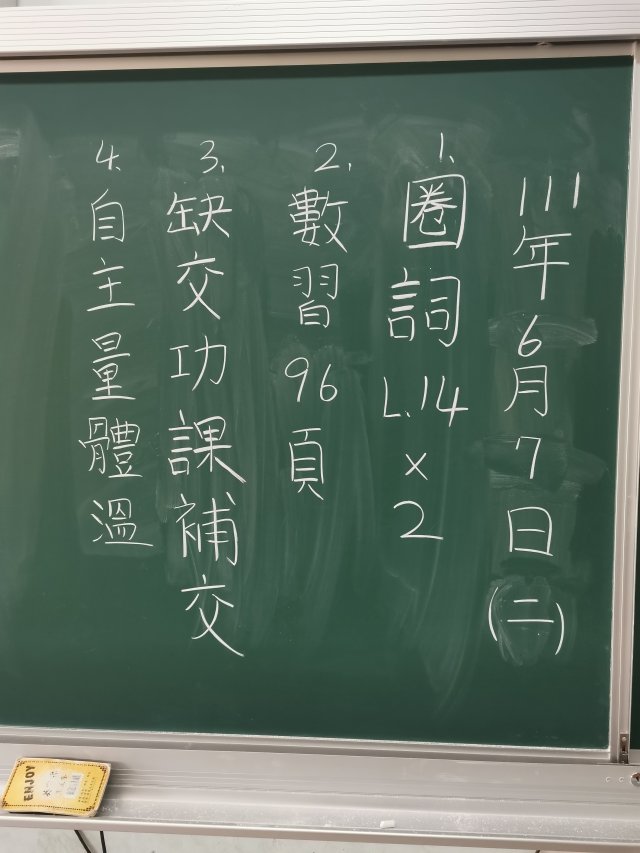 111年6月7日(二)
1. 圈詞L.14×2
2. 數習96頁
3. 缺交功課補交
4. 自主量體溫
ENJOY